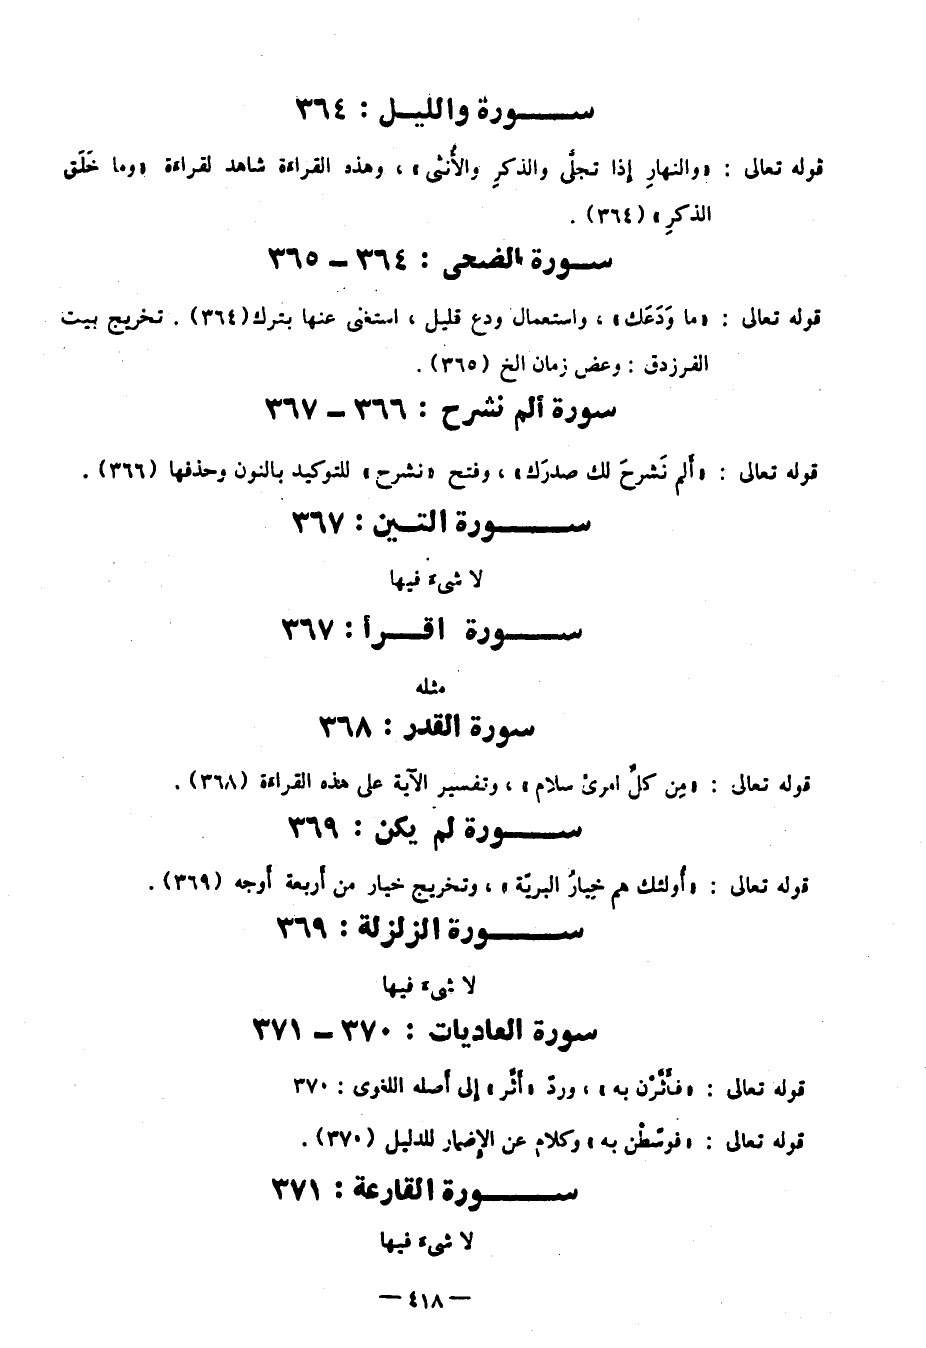 سورة والليل : ٣٦٤
قوله تعالى : «والنهارِ إذا تجلَّى والذكرِ والأُنثى» ، وهذه القراءة شاهد لقراءة «وما خَلَق
الذكرِ» (٣٦٤) .
سورة الضحى : ٣٦٤ – ٣٦٥
قوله تعالى : «ما وَدَعَك» ، واستعمال ودع قليل ، استغنى عنها بترك (٣٦٤) . تخريج بيت
الفرزدق : وعض زمان الخ (٣٦٥) .
سورة ألم نشرح : ٣٦٦ – ٣٦٧
قوله تعالى : «ألم نَشرحَ لك صدرَك» ، وفتح «نشرح» للتوكيد بالنون وحذفها (٣٦٦) .
سورة التين : ٣٦٧
لا شىء فيها
سورة اقرأ : ٣٦٧
مثله
سورة القدر : ٣٦٨
قوله تعالى : «مِن كلِّ امرئ سلام» ، وتفسير الآية على هذه القراءة (٣٦٨) .
سورة لم يكن : ٣٦٩
قوله تعالى : «أُولئك هم خِيارُ البريّة» ، وتخريج خيار من أربعة أوجه (٣٦٩) .
سورة الزلزلة : ٣٦٩
لا شىء فيها
سورة العاديات : ٣٧٠ – ٣٧١
قوله تعالى : «فأثَّرْن به» ، وردّ «أثَّر» إلى أصله اللغوى : ٣٧٠
قوله تعالى : «فوسّطْن به» وكلام عن الإضمار للدليل (٣٧٠) .
سورة القارعة : ٣٧١
لا شىء فيها
— ٤١٨ —